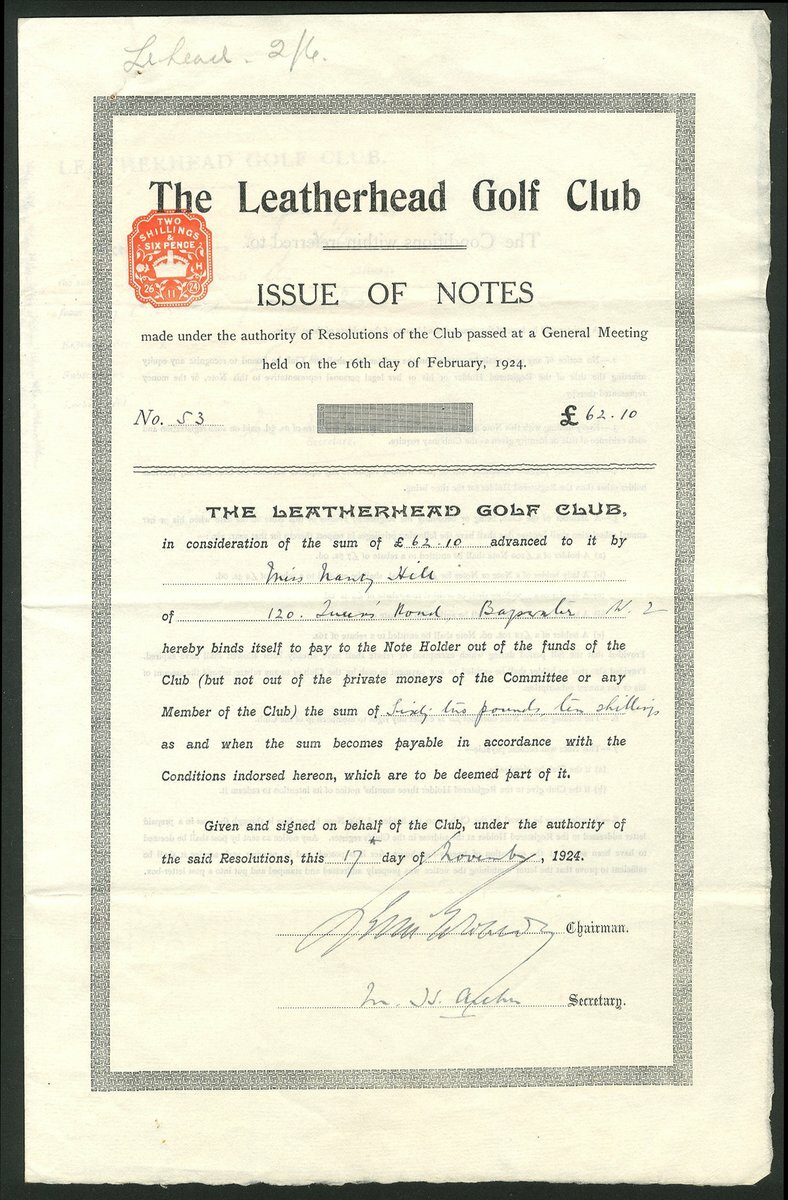 Lehead - 2/6.
The Leatherhead Golf Club
TWO
SHILLINGS
&
SIX PENCE
H
26 11 24
ISSUE OF NOTES
made under the authority of Resolutions of the Club passed at a General Meeting
held on the 16th day of February, 1924.
No. 53 £ 62.10
THE LEATHERHEAD GOLF CLUB,
in consideration of the sum of £ 62.10 advanced to it by
Miss Hill
of 120. Queen's Road, Bayswater W. 2
hereby binds itself to pay to the Note Holder out of the funds of the
Club (but not out of the private moneys of the Committee or any
Member of the Club) the sum of Sixty two pounds, ten shillings
as and when the sum becomes payable in accordance with the
Conditions indorsed hereon, which are to be deemed part of it.
Given and signed on behalf of the Club, under the authority of
the said Resolutions, this 17th day of November, 1924.
Chairman.
Secretary.